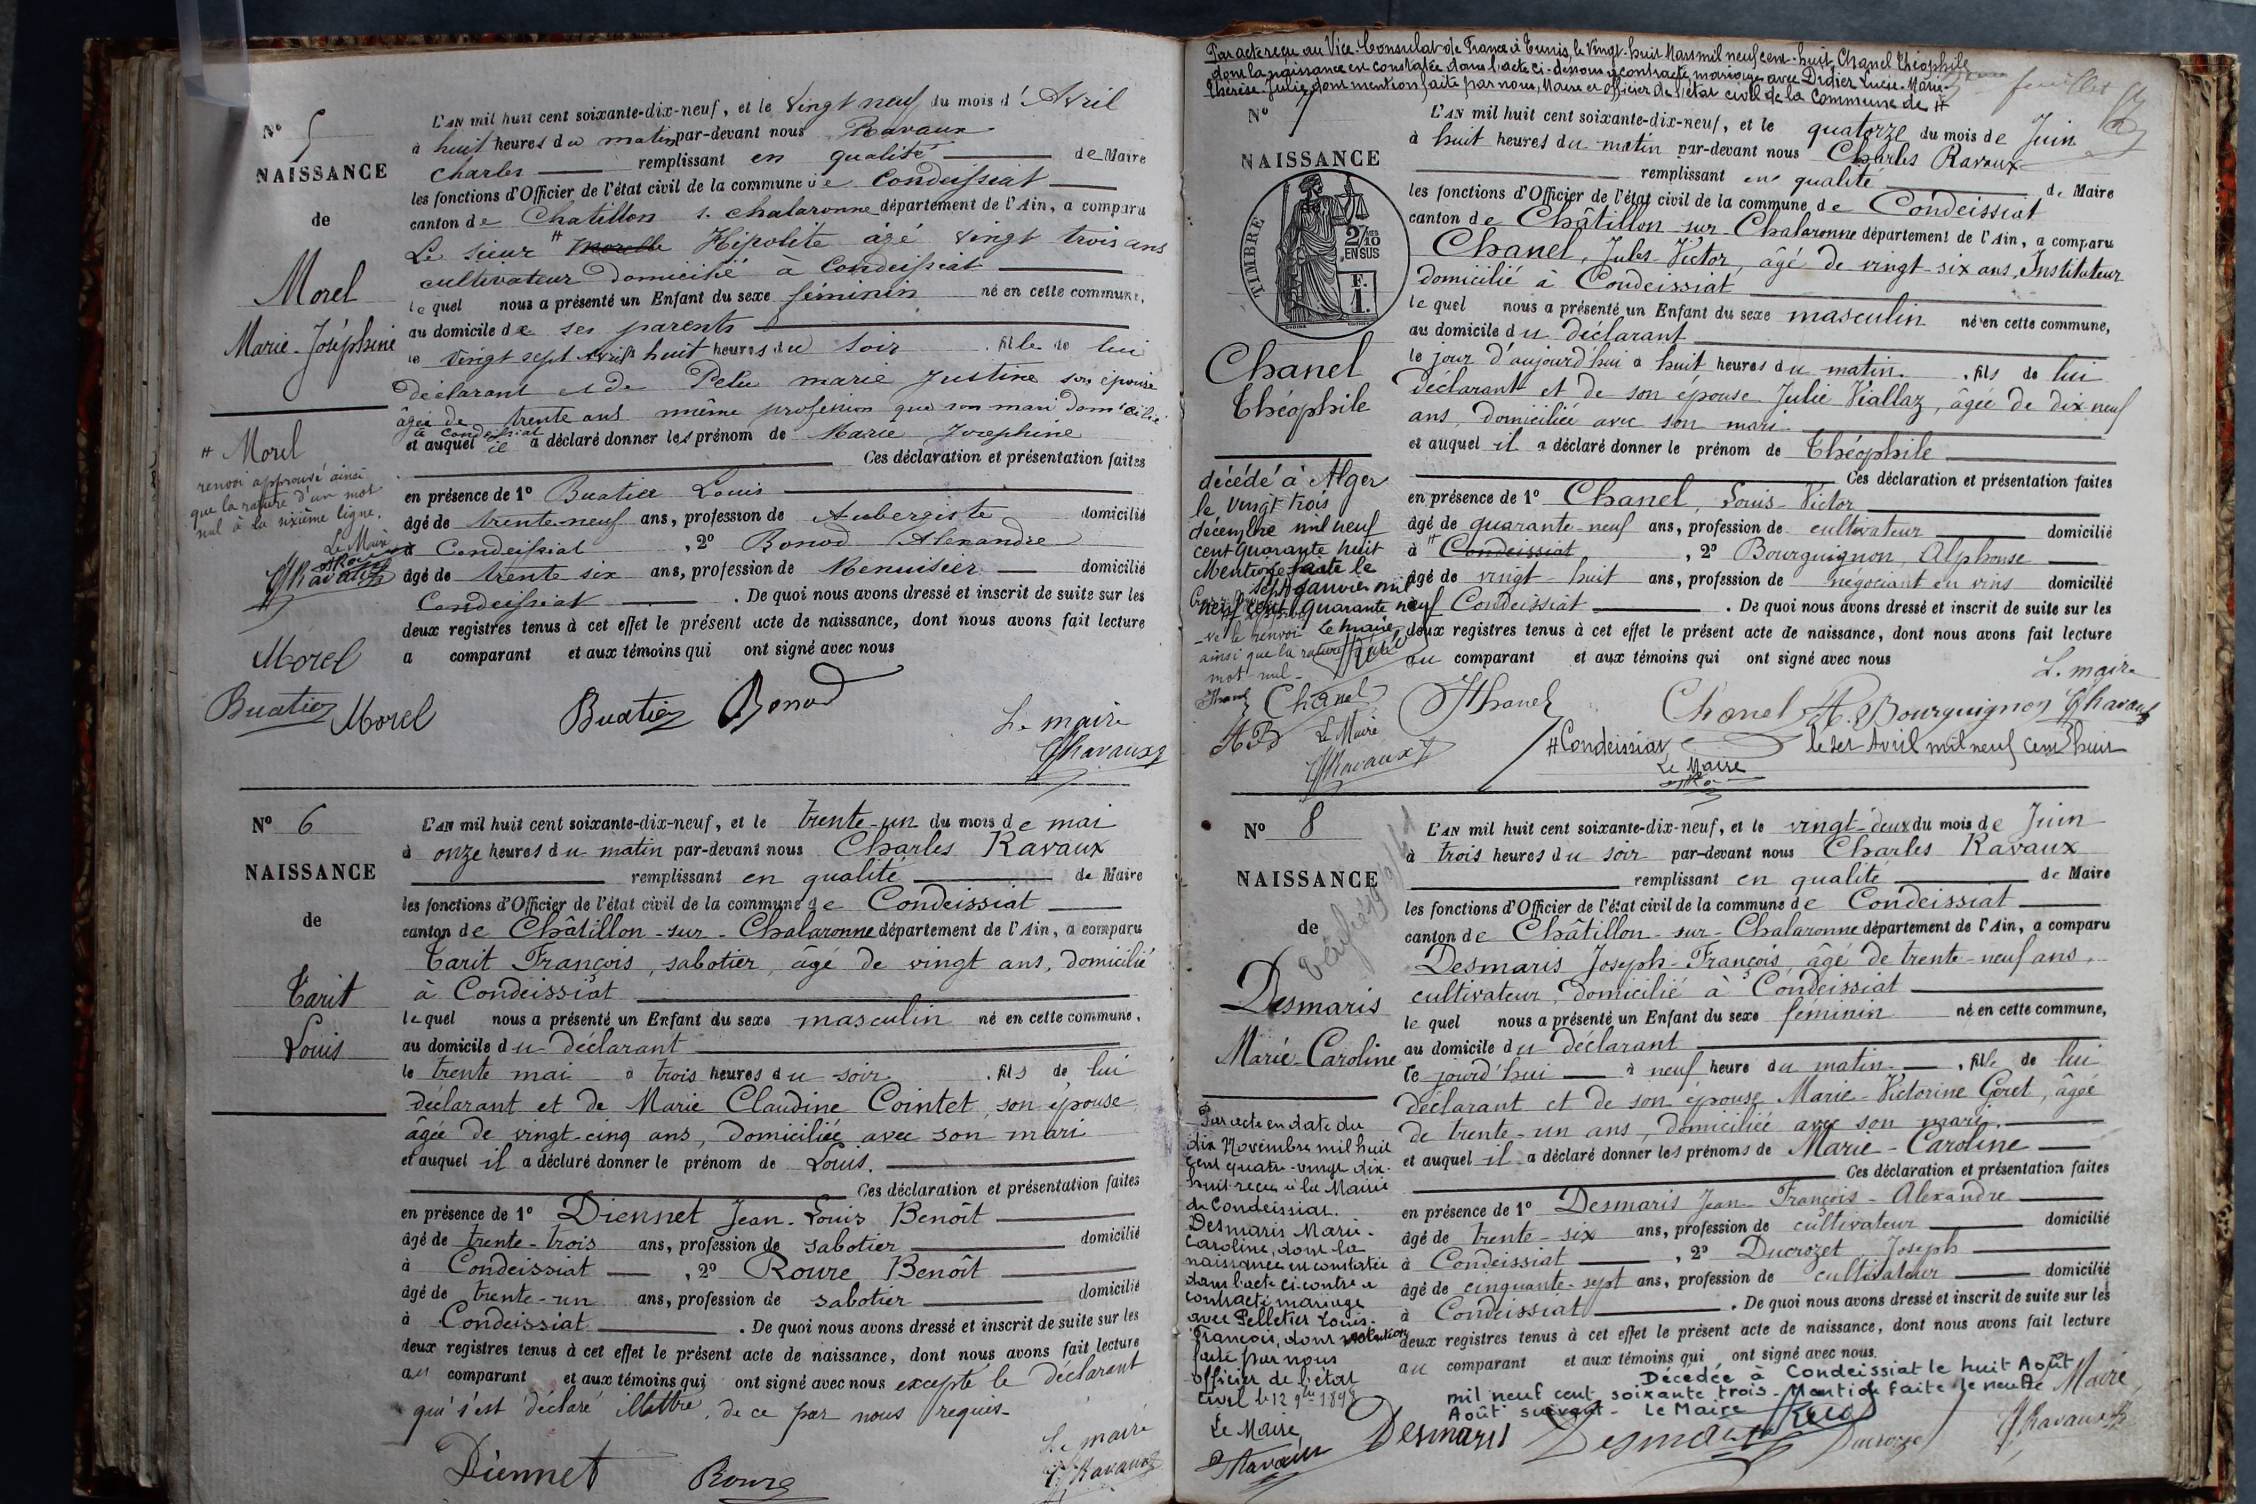 N° 5
NAISSANCE
de
Morel
Marie-Joséphine
L'AN mil huit cent soixante-dix-neuf, et le vingt neuf du mois d'Avril
à huit heures du matin par-devant nous Ravaux
Charles remplissant en qualité de Maire
les fonctions d'Officier de l'état civil de la commune de Condeissiat
canton de Chatillon s. chalaronne département de l'Ain, a comparu
Le sieur # Morelle Hipolite âgé vingt trois ans
cultivateur domicilié à Condeissiat
lequel nous a présenté un Enfant du sexe féminin né en cette commune,
au domicile de ses parents
le vingt sept Avril à huit heures du soir fille de lui
déclarant et de Pelu marie Justine son épouse
âgée de trente ans même profession que son mari domiciliée
à Condeissiat
et auquel il a déclaré donner les prénom de Marie Josephine
Ces déclaration et présentation faites
en présence de 1° Buatier Louis
âgé de trente-neuf ans, profession de Aubergiste domicilié
à Condeissiat, 2° Bonod Alexandre
âgé de trente six ans, profession de Menuisier domicilié
Condeissiat. De quoi nous avons dressé et inscrit de suite sur les
deux registres tenus à cet effet le présent acte de naissance, dont nous avons fait lecture
a comparant et aux témoins qui ont signé avec nous
# Morel
renvoi approuvé ainsi
que la rature d'un mot
nul à la sixième ligne.
Le Maire
Ravaux
Morel
Buatier Morel Buatier Bonod
Le maire
Ravaux
N° 6
NAISSANCE
de
Tarit
Louis
L'AN mil huit cent soixante-dix-neuf, et le trente-un du mois de mai
à onze heures du matin par-devant nous Charles Ravaux
remplissant en qualité de Maire
les fonctions d'Officier de l'état civil de la commune de Condeissiat
canton de Châtillon-sur-Chalaronne département de l'Ain, a comparu
Tarit François, sabotier, âgé de vingt ans, domicilié
à Condeissiat
lequel nous a présenté un Enfant du sexe masculin né en cette commune,
au domicile du déclarant
le trente mai à trois heures du soir. fils de lui
déclarant et de Marie Claudine Cointet, son épouse
âgée de vingt-cinq ans, domiciliée avec son mari
et auquel il a déclaré donner le prénom de Louis.
Ces déclaration et présentation faites
en présence de 1° Diennet Jean-Louis Benoît
âgé de trente-trois ans, profession de sabotier domicilié
à Condeissiat, 2° Roure Benoît
âgé de trente-un ans, profession de sabotier domicilié
à Condeissiat. De quoi nous avons dressé et inscrit de suite sur les
deux registres tenus à cet effet le présent acte de naissance, dont nous avons fait lecture
au comparant et aux témoins qui ont signé avec nous excepté le déclarant
qui s'est déclaré illettré, de ce par nous requis-
Le maire
Diennet Roure Ravaux
Par acte reçu au Vice-Consulat de France à Tunis, le vingt-huit Mars mil neuf cent-huit Chanel Théophile
dont la naissance est constatée dans l'acte ci-dessous a contracté mariage avec Didier Lucie-Marie-
Thérèse-Julie dont mention faite par nous, Maire et officier de l'état civil de la Commune de #
feuillet
N° 7
NAISSANCE
TIMBRE
2/10
EN SUS
F.
1.
Chanel
Théophile
L'AN mil huit cent soixante-dix-neuf, et le quatorze du mois de Juin
à huit heures du matin par-devant nous Charles Ravaux
remplissant en qualité de Maire
les fonctions d'Officier de l'état civil de la commune de Condeissiat
canton de Châtillon-sur-Chalaronne département de l'Ain, a comparu
Chanel, Jules-Victor, âgé de vingt-six ans, Instituteur
domicilié à Condeissiat
lequel nous a présenté un Enfant du sexe masculin né en cette commune,
au domicile du déclarant
le jour d'aujourd'hui à huit heures du matin. fils de lui
déclarant et de son épouse Julie Viallaz, âgée de dix-neuf
ans, domiciliée avec son mari.
et auquel il a déclaré donner le prénom de Théophile
Ces déclaration et présentation faites
en présence de 1° Chanel, Louis-Victor
âgé de quarante-neuf ans, profession de cultivateur domicilié
à # Condeissiat, 2° Bourguignon, Alphonse
âgé de vingt-huit ans, profession de négociant en vins domicilié
Condeissiat. De quoi nous avons dressé et inscrit de suite sur les
deux registres tenus à cet effet le présent acte de naissance, dont nous avons fait lecture
au comparant et aux témoins qui ont signé avec nous
décédé à Alger
le vingt trois
décembre mil neuf
cent quarante huit
Mention faite le
sept janvier mil
neuf cent quarante neuf
Le Maire
ve le renvoi
ainsi que la rature
mot nul-
Chanel
A.B Le Maire
Ravaux
Chanel Chanel A. Bourguignon
L. maire
Ravaux
#Condeissiat le 1er Avril mil neuf cent huit
Le Maire
N° 8
NAISSANCE
de
Desmaris
Marie-Caroline
L'AN mil huit cent soixante-dix-neuf, et le vingt-deux du mois de Juin
à trois heures du soir par-devant nous Charles Ravaux
remplissant en qualité de Maire
les fonctions d'Officier de l'état civil de la commune de Condeissiat
canton de Châtillon-sur-Chalaronne département de l'Ain, a comparu
Desmaris Joseph-François, âgé de trente-neuf ans,
cultivateur, domicilié à Condeissiat
lequel nous a présenté un Enfant du sexe féminin né en cette commune,
au domicile du déclarant
le jourd'hui à neuf heure du matin, fille de lui
déclarant et de son épouse Marie-Victorine Goret, âgée
de trente-un ans, domiciliée avec son mari.
et auquel il a déclaré donner les prénoms de Marie-Caroline
Ces déclaration et présentation faites
en présence de 1° Desmaris Jean François-Alexandre
âgé de trente-six ans, profession de cultivateur domicilié
à Condeissiat, 2° Ducrozet Joseph
âgé de cinquante-sept ans, profession de cultivateur domicilié
à Condeissiat. De quoi nous avons dressé et inscrit de suite sur les
deux registres tenus à cet effet le présent acte de naissance, dont nous avons fait lecture
au comparant et aux témoins qui ont signé avec nous.
Par acte en date du
dix Novembre mil huit
cent quatre-vingt dix-
huit reçu à la Mairie
de Condeissiat.
Desmaris Marie-
Caroline, dont la
naissance est constatée
dans l'acte ci-contre a
contracté mariage
avec Pelletier Louis-
François, dont mention
faite par nous
officier de l'état
civil le 12 9bre 1898
Le Maire
Ravaux
Décédée à Condeissiat le huit Août
mil neuf cent soixante trois - Mention faite le neuf
Août suivant - Le Maire
Le Maire
Desmaris Desmaris Ducrozet Ravaux